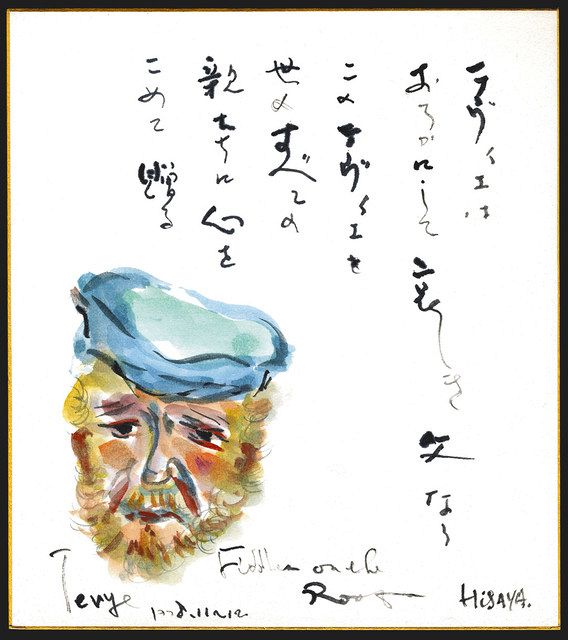 テヴィエは
おろかにして 哀しき 父なり
このテヴィエを
世のすべての
親たちに心を
こめて 贈る
Tevye
Fiddler on the
Roof
HISAYA.